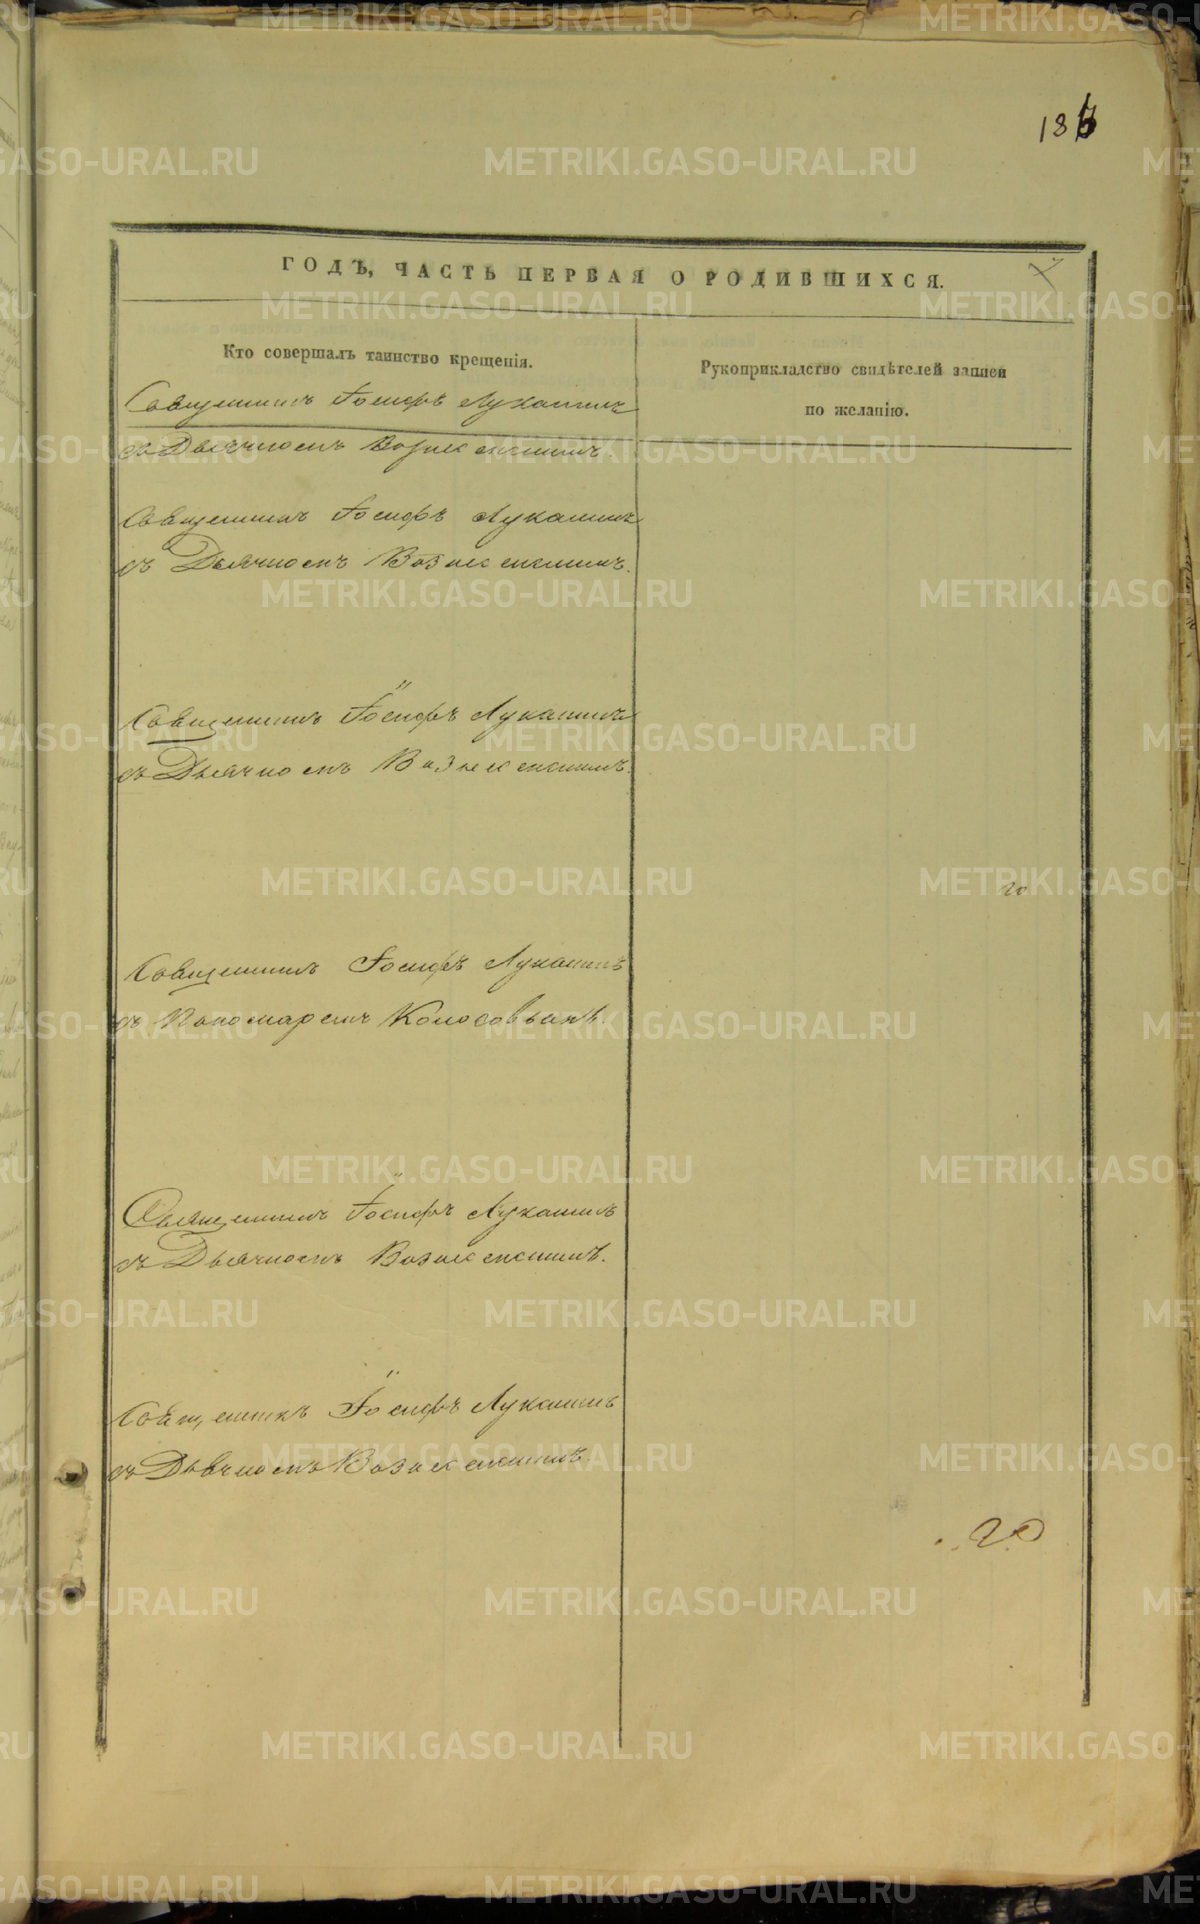 187
ГОДЪ, ЧАСТЬ ПЕРВАЯ О РОДИВШИХСЯ.
Кто совершалъ таинство крещенія.
Рукоприкладство свидѣтелей записи
по желанію.
Священникъ Іосифъ Лукашинъ
съ Дьячкомъ Вознесенскимъ.
Священникъ Іосифъ Лукашинъ
съ Дьячкомъ Вознесенскимъ.
Священникъ Іосифъ Лукашинъ
съ Дьячкомъ Вознесенскимъ.
Священникъ Іосифъ Лукашинъ
съ Пономаремъ
Священникъ Іосифъ Лукашинъ
съ Дьячкомъ Вознесенскимъ.
Священникъ Іосифъ Лукашинъ
съ Дьячкомъ Вознесенскимъ.
METRIKI.GASO-URAL.RU